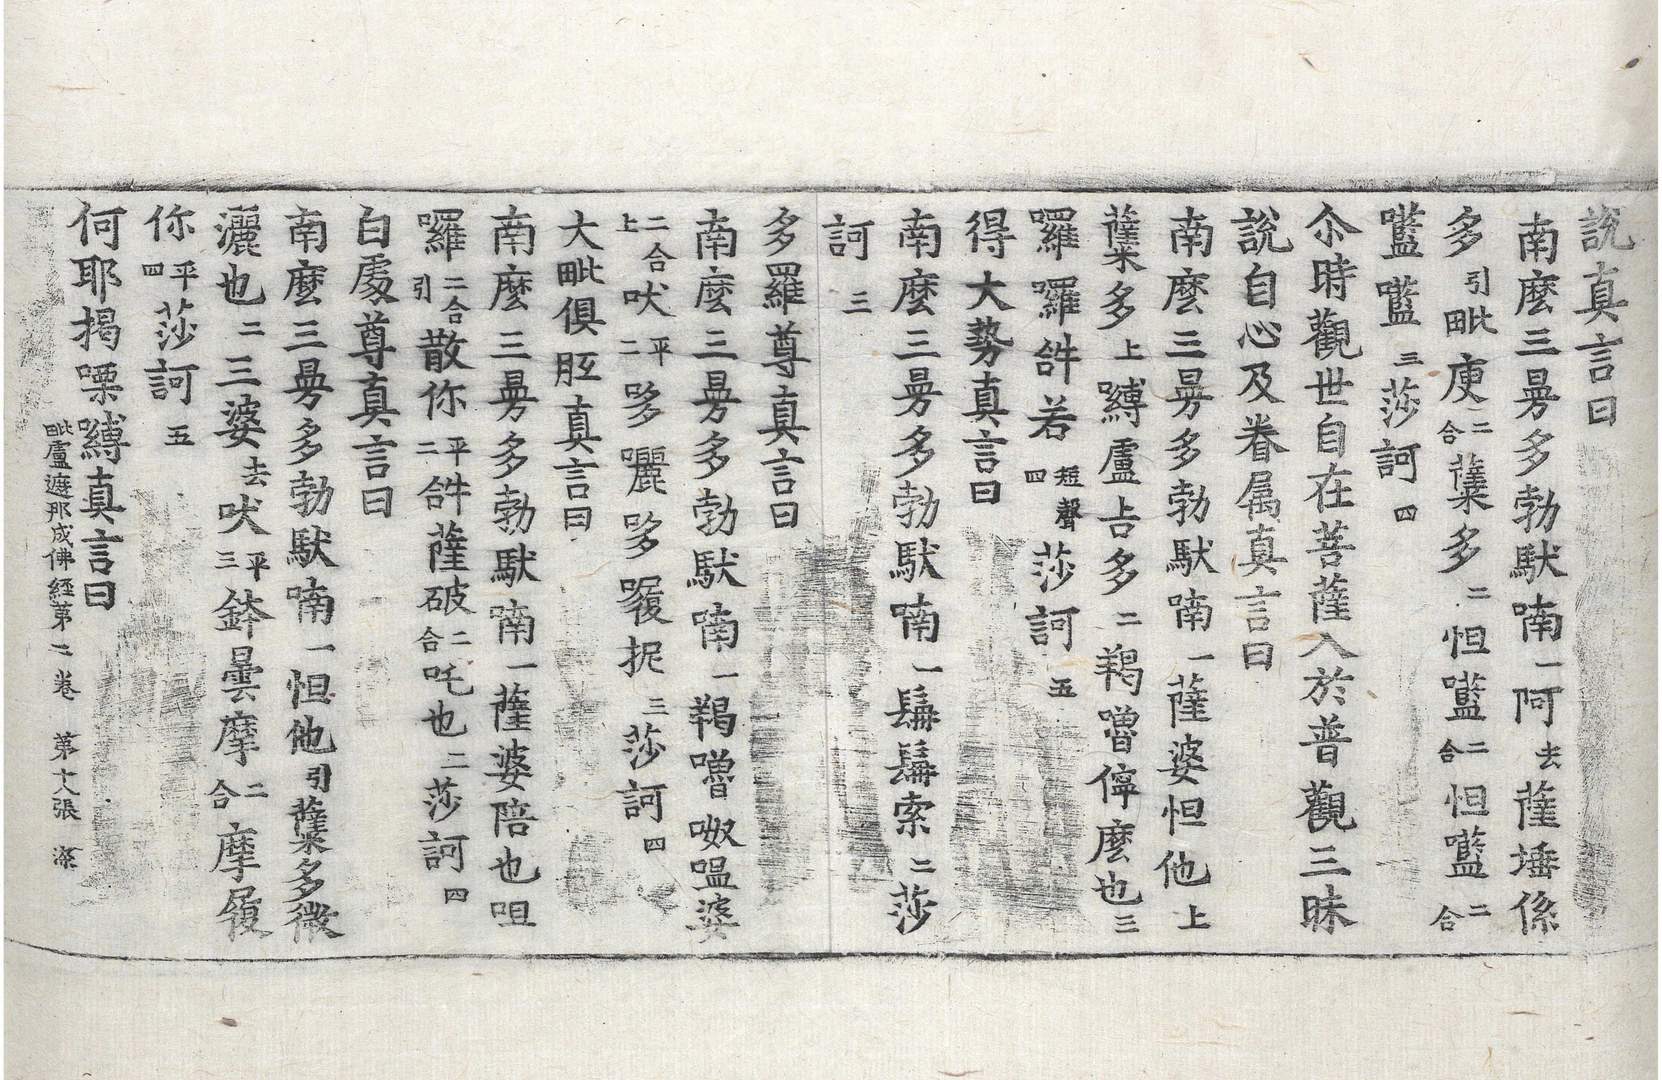 說真言曰
南麼三曼多勃馱喃一阿去薩埵係
多引毗庾二合薩㗚多二怛囕二合怛囕二合
囕囕三莎訶四
尒時觀世自在菩薩入於普觀三昧
說自心及眷属真言曰
南麼三曼多勃馱喃一薩婆怛他上
薩㗚多上嚩盧吉多二羯嚕儜麼也三
囉囉囉䛿若短聲四莎訶五
得大勢真言曰
南麼三曼多勃馱喃一髯髯索二莎
訶三
多羅尊真言曰
南麼三曼多勃馱喃一羯嚕呶嗢婆
二合上吠平二哆囇哆囇抳三莎訶四
大毗俱胝真言曰
南麼三曼多勃馱喃一薩婆陪也呾
囉二合引散你平二䛿薩破二合吒也二莎訶四
白處尊真言曰
南麼三曼多勃馱喃一怛他引薩㗚多微
灑也二三婆去吠平三鉢曇摩二合摩履
你平四莎訶五
何耶揭㗚嚩真言曰
毗盧遮那成佛經第二卷 第十八張